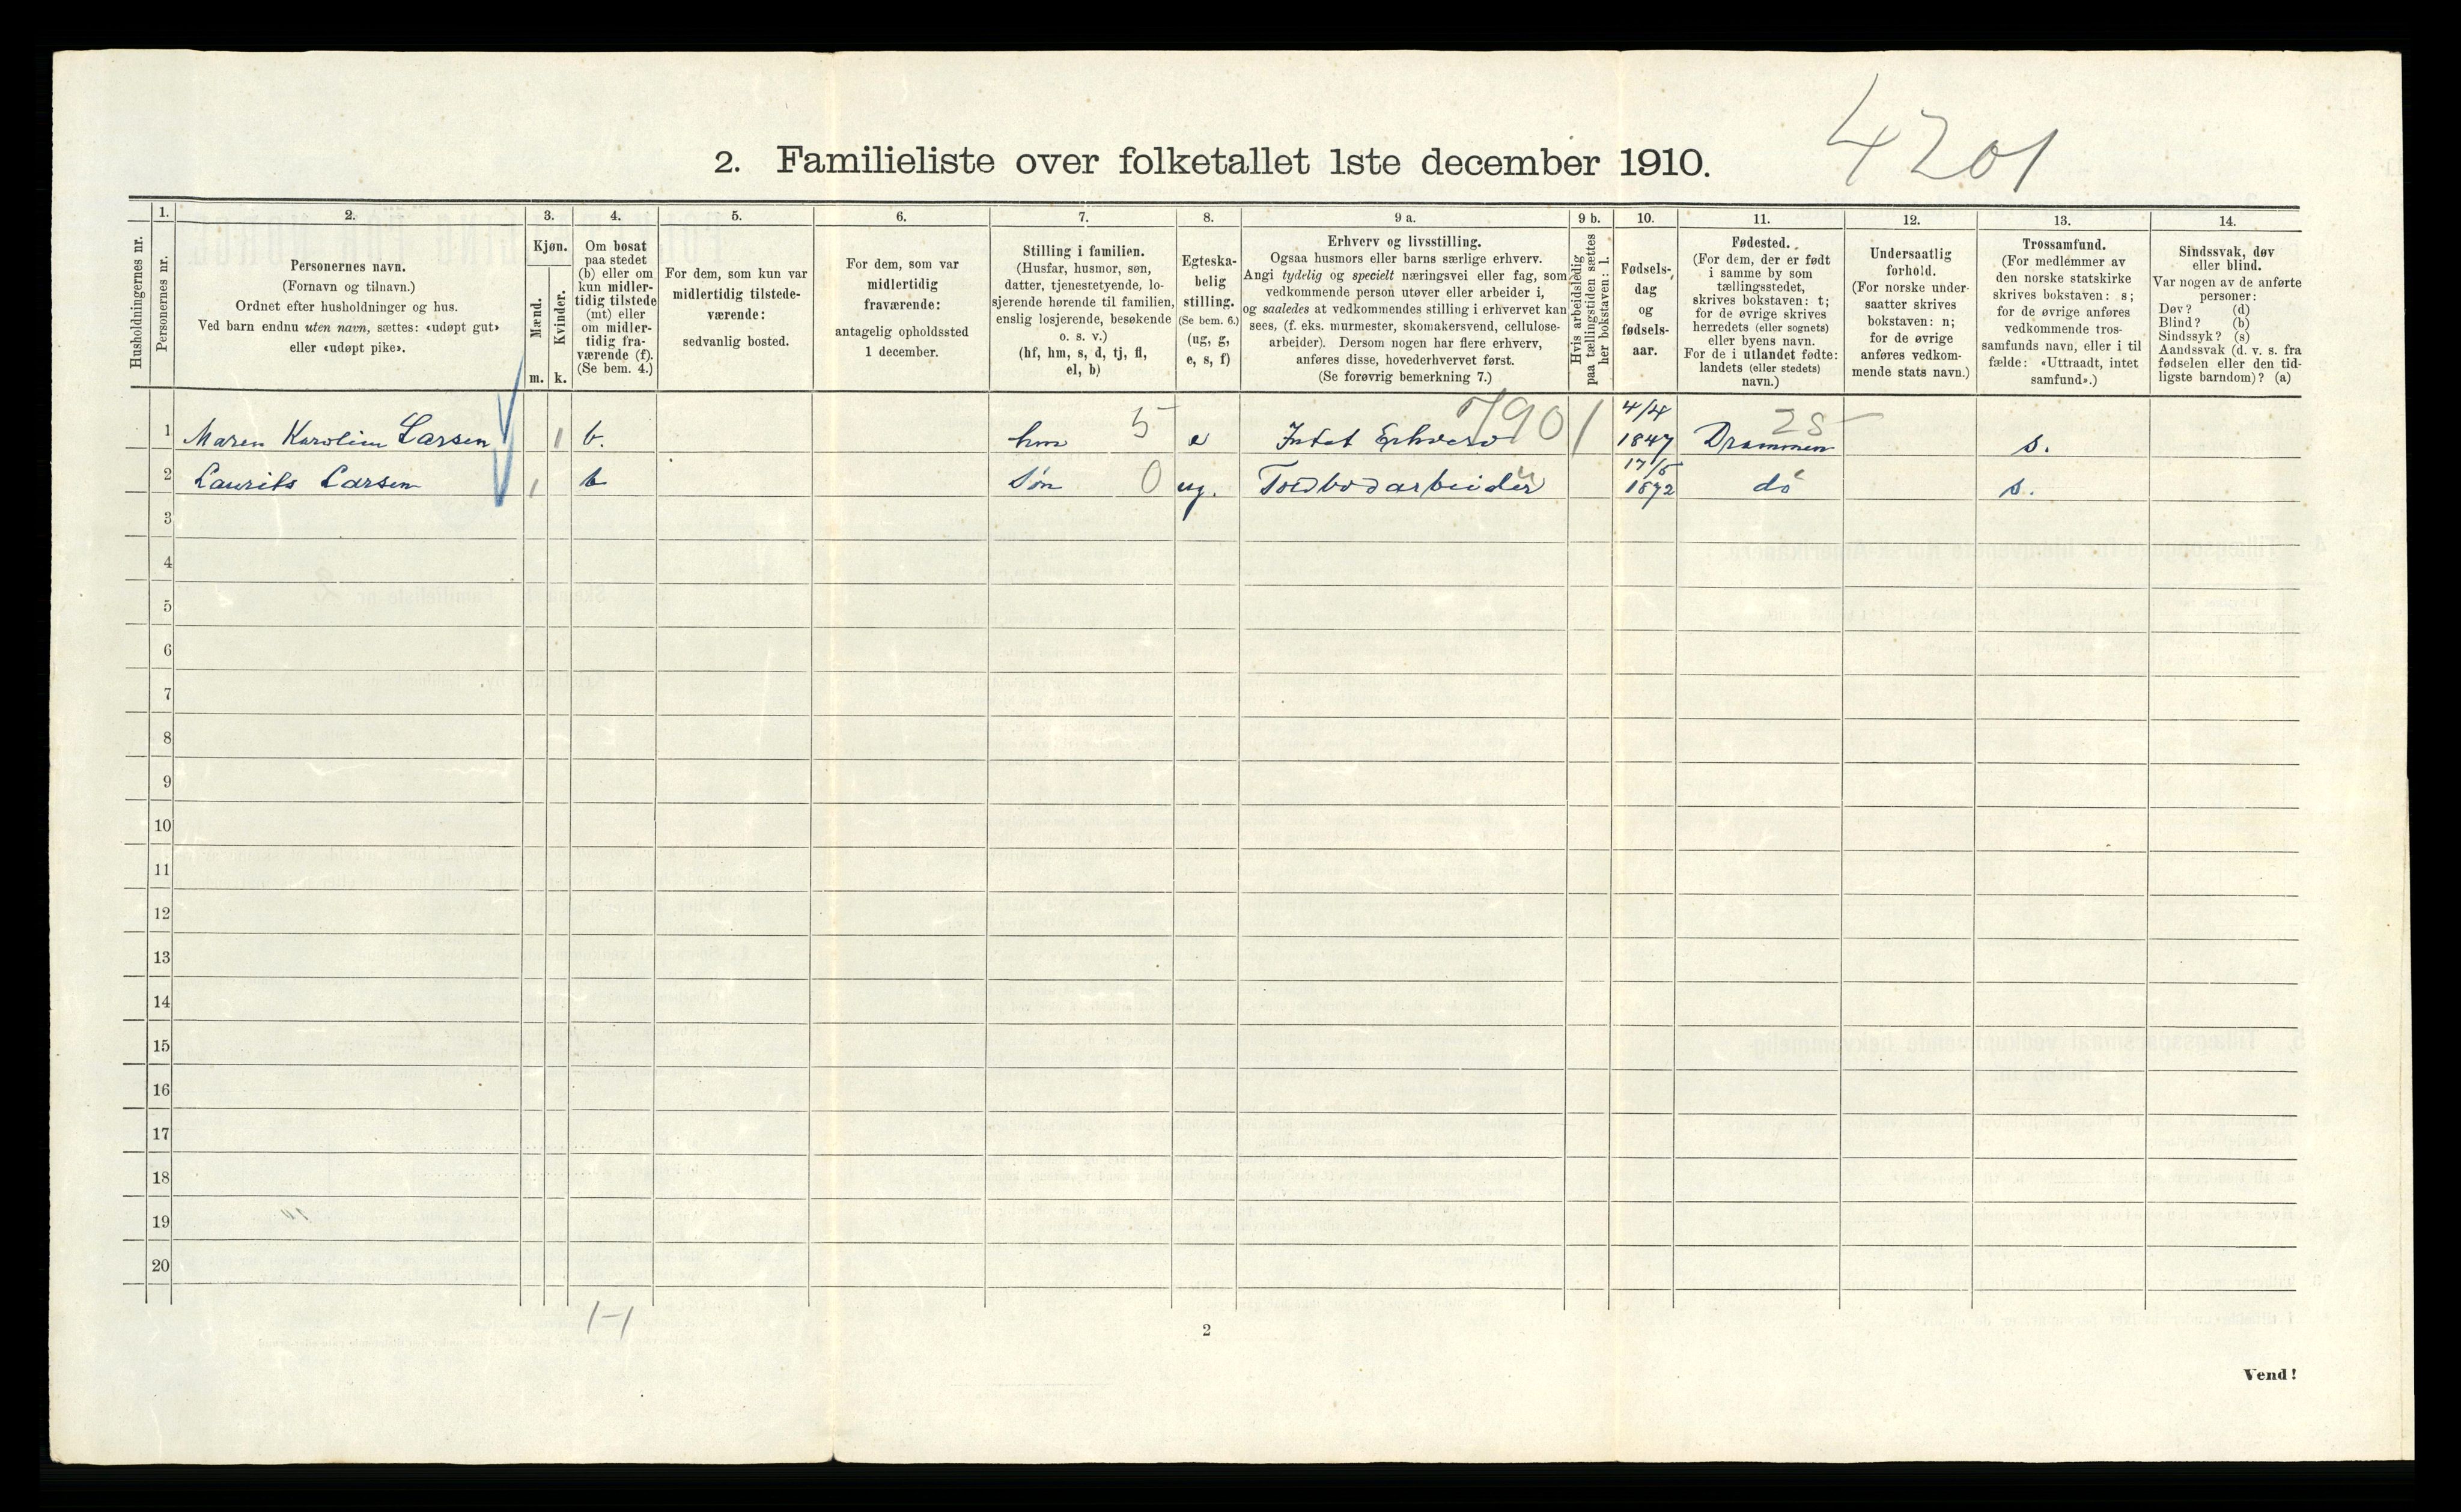 4201
2. Familieliste over folketallet 1ste december 1910.
Husholdningernes nr.
1.
Personernes nr.
2.
Personernes navn.
(Fornavn og tilnavn.)
Ordnet efter husholdninger og hus.
Ved barn endnu uten navn, sættes: «udøpt gut»
eller «udøpt pike».
3.
Kjøn.
Mænd.
Kvinder.
m.
k.
4.
Om bosat
paa stedet
(b) eller om
kun midler-
tidig tilstede
(mt) eller
om midler-
tidig fra-
værende (f).
(Se bem. 4.)
5.
For dem, som kun var
midlertidig tilstede-
værende:
sedvanlig bosted.
6.
For dem, som var
midlertidig
fraværende:
antagelig opholdssted
1 december.
7.
Stilling i familien.
(Husfar, husmor, søn,
datter, tjenestetyende, lo-
sjerende hørende til familien,
enslig losjerende, besøkende
o. s. v.)
(hf, hm, s, d, tj, fl,
el, b)
8.
Egteska-
belig
stilling.
(Se bem. 6.)
(ug, g,
e, s, f)
9 a.
Erhverv og livsstilling.
Ogsaa husmors eller barns særlige erhverv.
Angi tydelig og specielt næringsvei eller fag, som
vedkommende person utøver eller arbeider i,
og saaledes at vedkommendes stilling i erhvervet kan
sees, (f. eks. murmester, skomakersvend, cellulose-
arbeider). Dersom nogen har flere erhverv,
anføres disse, hovederhvervet først.
(Se forøvrig bemerkning 7.)
9 b.
Hvis arbeidsledig
paa tællingstiden sættes
her bokstaven: l.
10.
Fødsels-
dag
og
fødsels-
aar.
11.
Fødested.
(For dem, der er født
i samme by som
tællingsstedet,
skrives bokstaven: t;
for de øvrige skrives
herredets (eller sognets)
eller byens navn.
For de i utlandet fødte:
landets (eller stedets)
navn.)
12.
Undersaatlig
forhold.
(For norske under-
saatter skrives
bokstaven: n;
for de øvrige
anføres vedkom-
mende stats navn.)
13.
Trossamfund.
(For medlemmer av
den norske statskirke
skrives bokstaven: s;
for de øvrige anføres
vedkommende tros-
samfunds navn, eller i til
fælde: «Uttraadt, intet
samfund».)
14.
Sindssvak, døv
eller blind.
Var nogen av de anførte
personer:
Døv? (d)
Blind? (b)
Sindssyk? (s)
Aandssvak (d. v. s. fra
fødselen eller den tid-
ligste barndom)? (a)
1 Maren Karoline Larsen 1 b. hm 5 e Intet Erhverv 7901 4/4 1847 Drammen 28 s.
2 Laurits Larsen 1 b Søn 0 ug. Toldbodarbeider 17/5 1872 do s.
3
4
5
6
7
8
9
10
11
12
13
14
15
16
17
18
19
20
1-1
2
Vend!